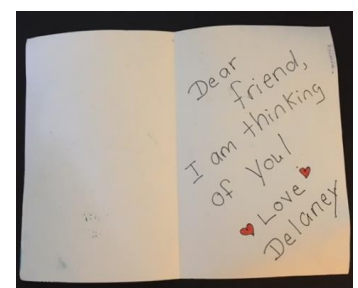 Dear
friend,
I am thinking
of you!
Love
Delaney